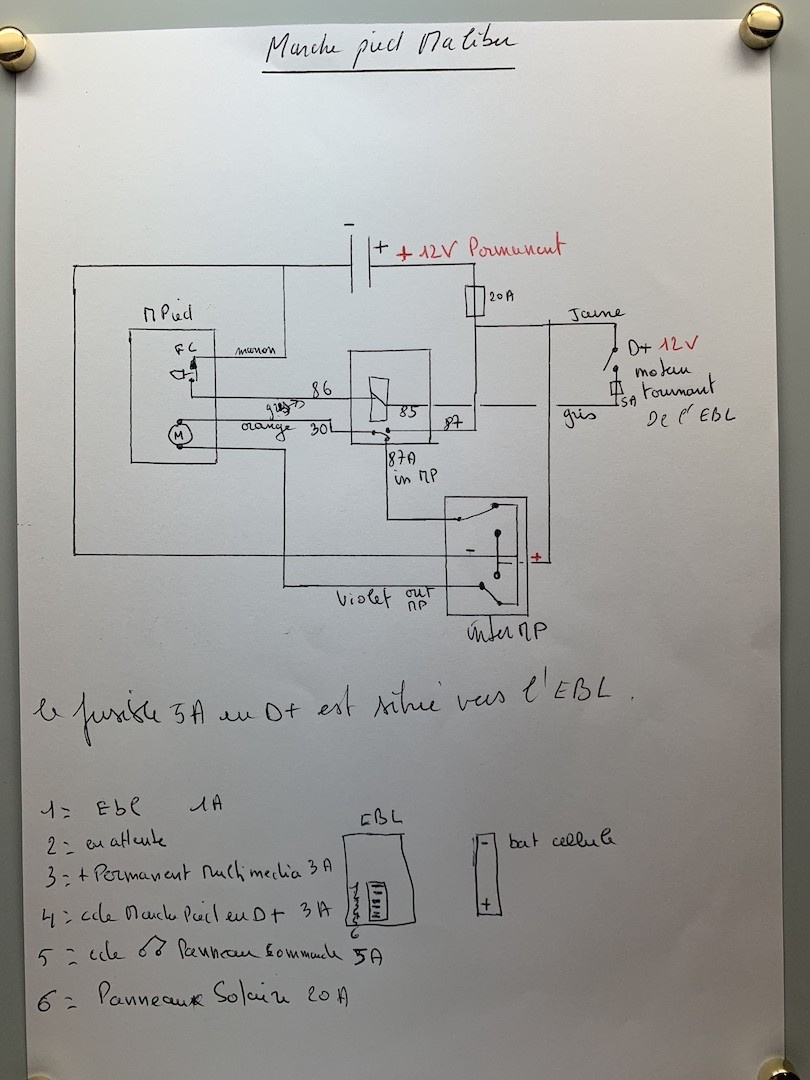 Marche pied Malibu
-
+
+ 12V Permanent
20A
Jaune
M Pied
FC
marron
D+ 12V
moteur
tournant
De l'EBL
5A
86
gris
85
gris
orange
30
87
M
87A
in MP
-
+
Violet
out
MP
inter MP
le fusible 5A en D+ est situé vers l'EBL.
1= Ebl 1A
2= en attente
3= + Permanent Multimedia 3A
4= cde Marche Pied en D+ 3A
5= cde Panneau Commande 5A
6= Panneaux Solaire 20A
EBL
6
-
+
bat cellule